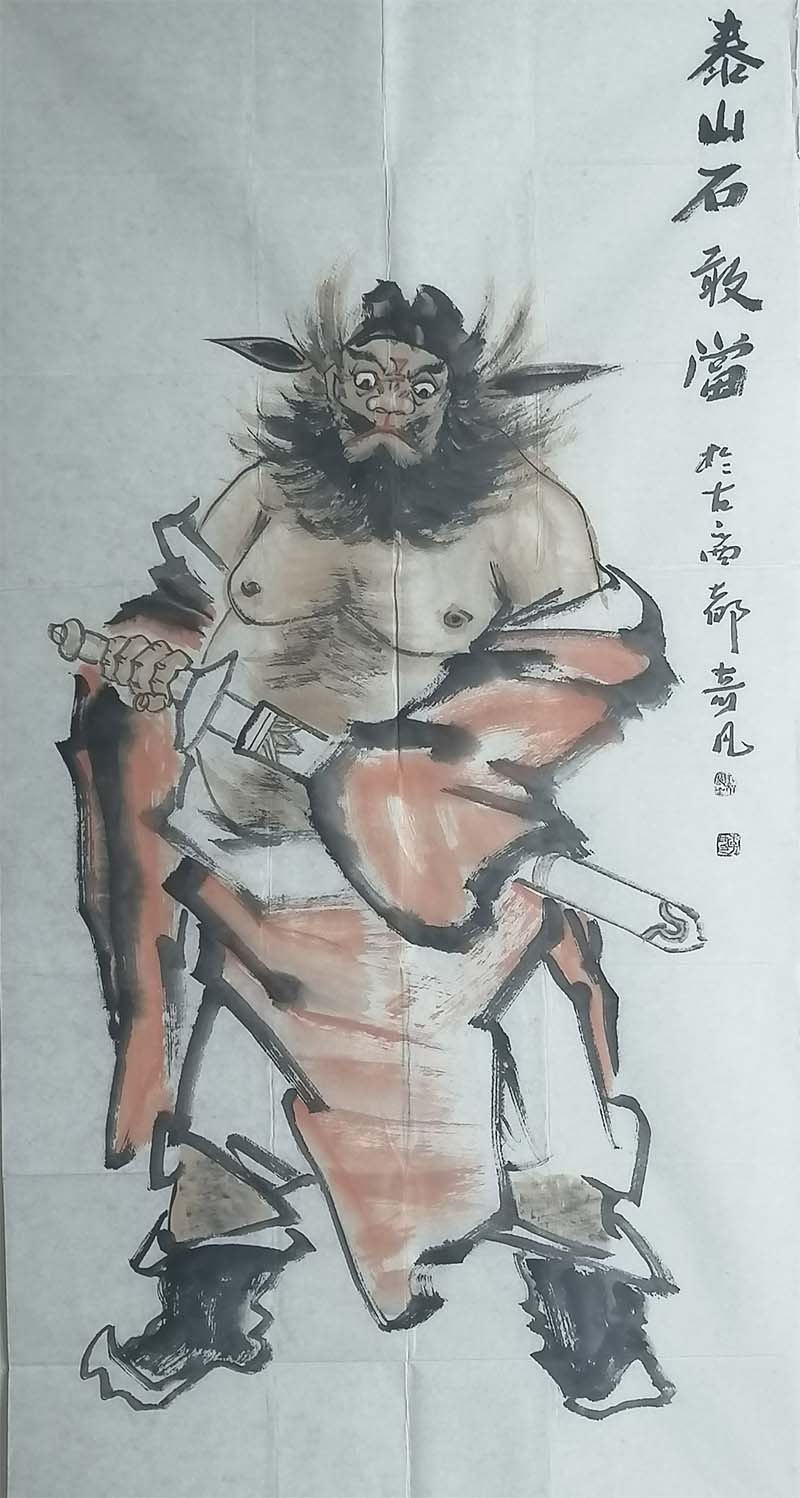 泰山石敢當
於古商都奇凡